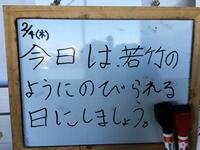 3/4(木)
今日は、若竹の
ようにのびられる
日にしましょう。